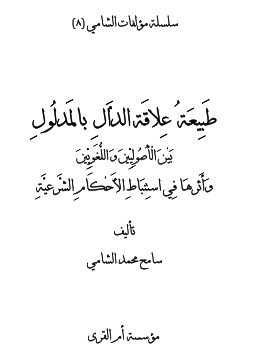 سلسلة مؤلفات الشامي (٨)
طَبِيعَةُ عِلاقَةِ الدالِّ بِالمَدلُولِ
بَيْنَ الأُصُولِيِّينَ وَاللُّغَوِيِّينَ
وَأَثَرُهَا فِي اسْتِنْبَاطِ الأَحْكَامِ الشَّرْعِيَّةِ
تأليف
سامح محمد الشامي
مؤسسة أم القرى